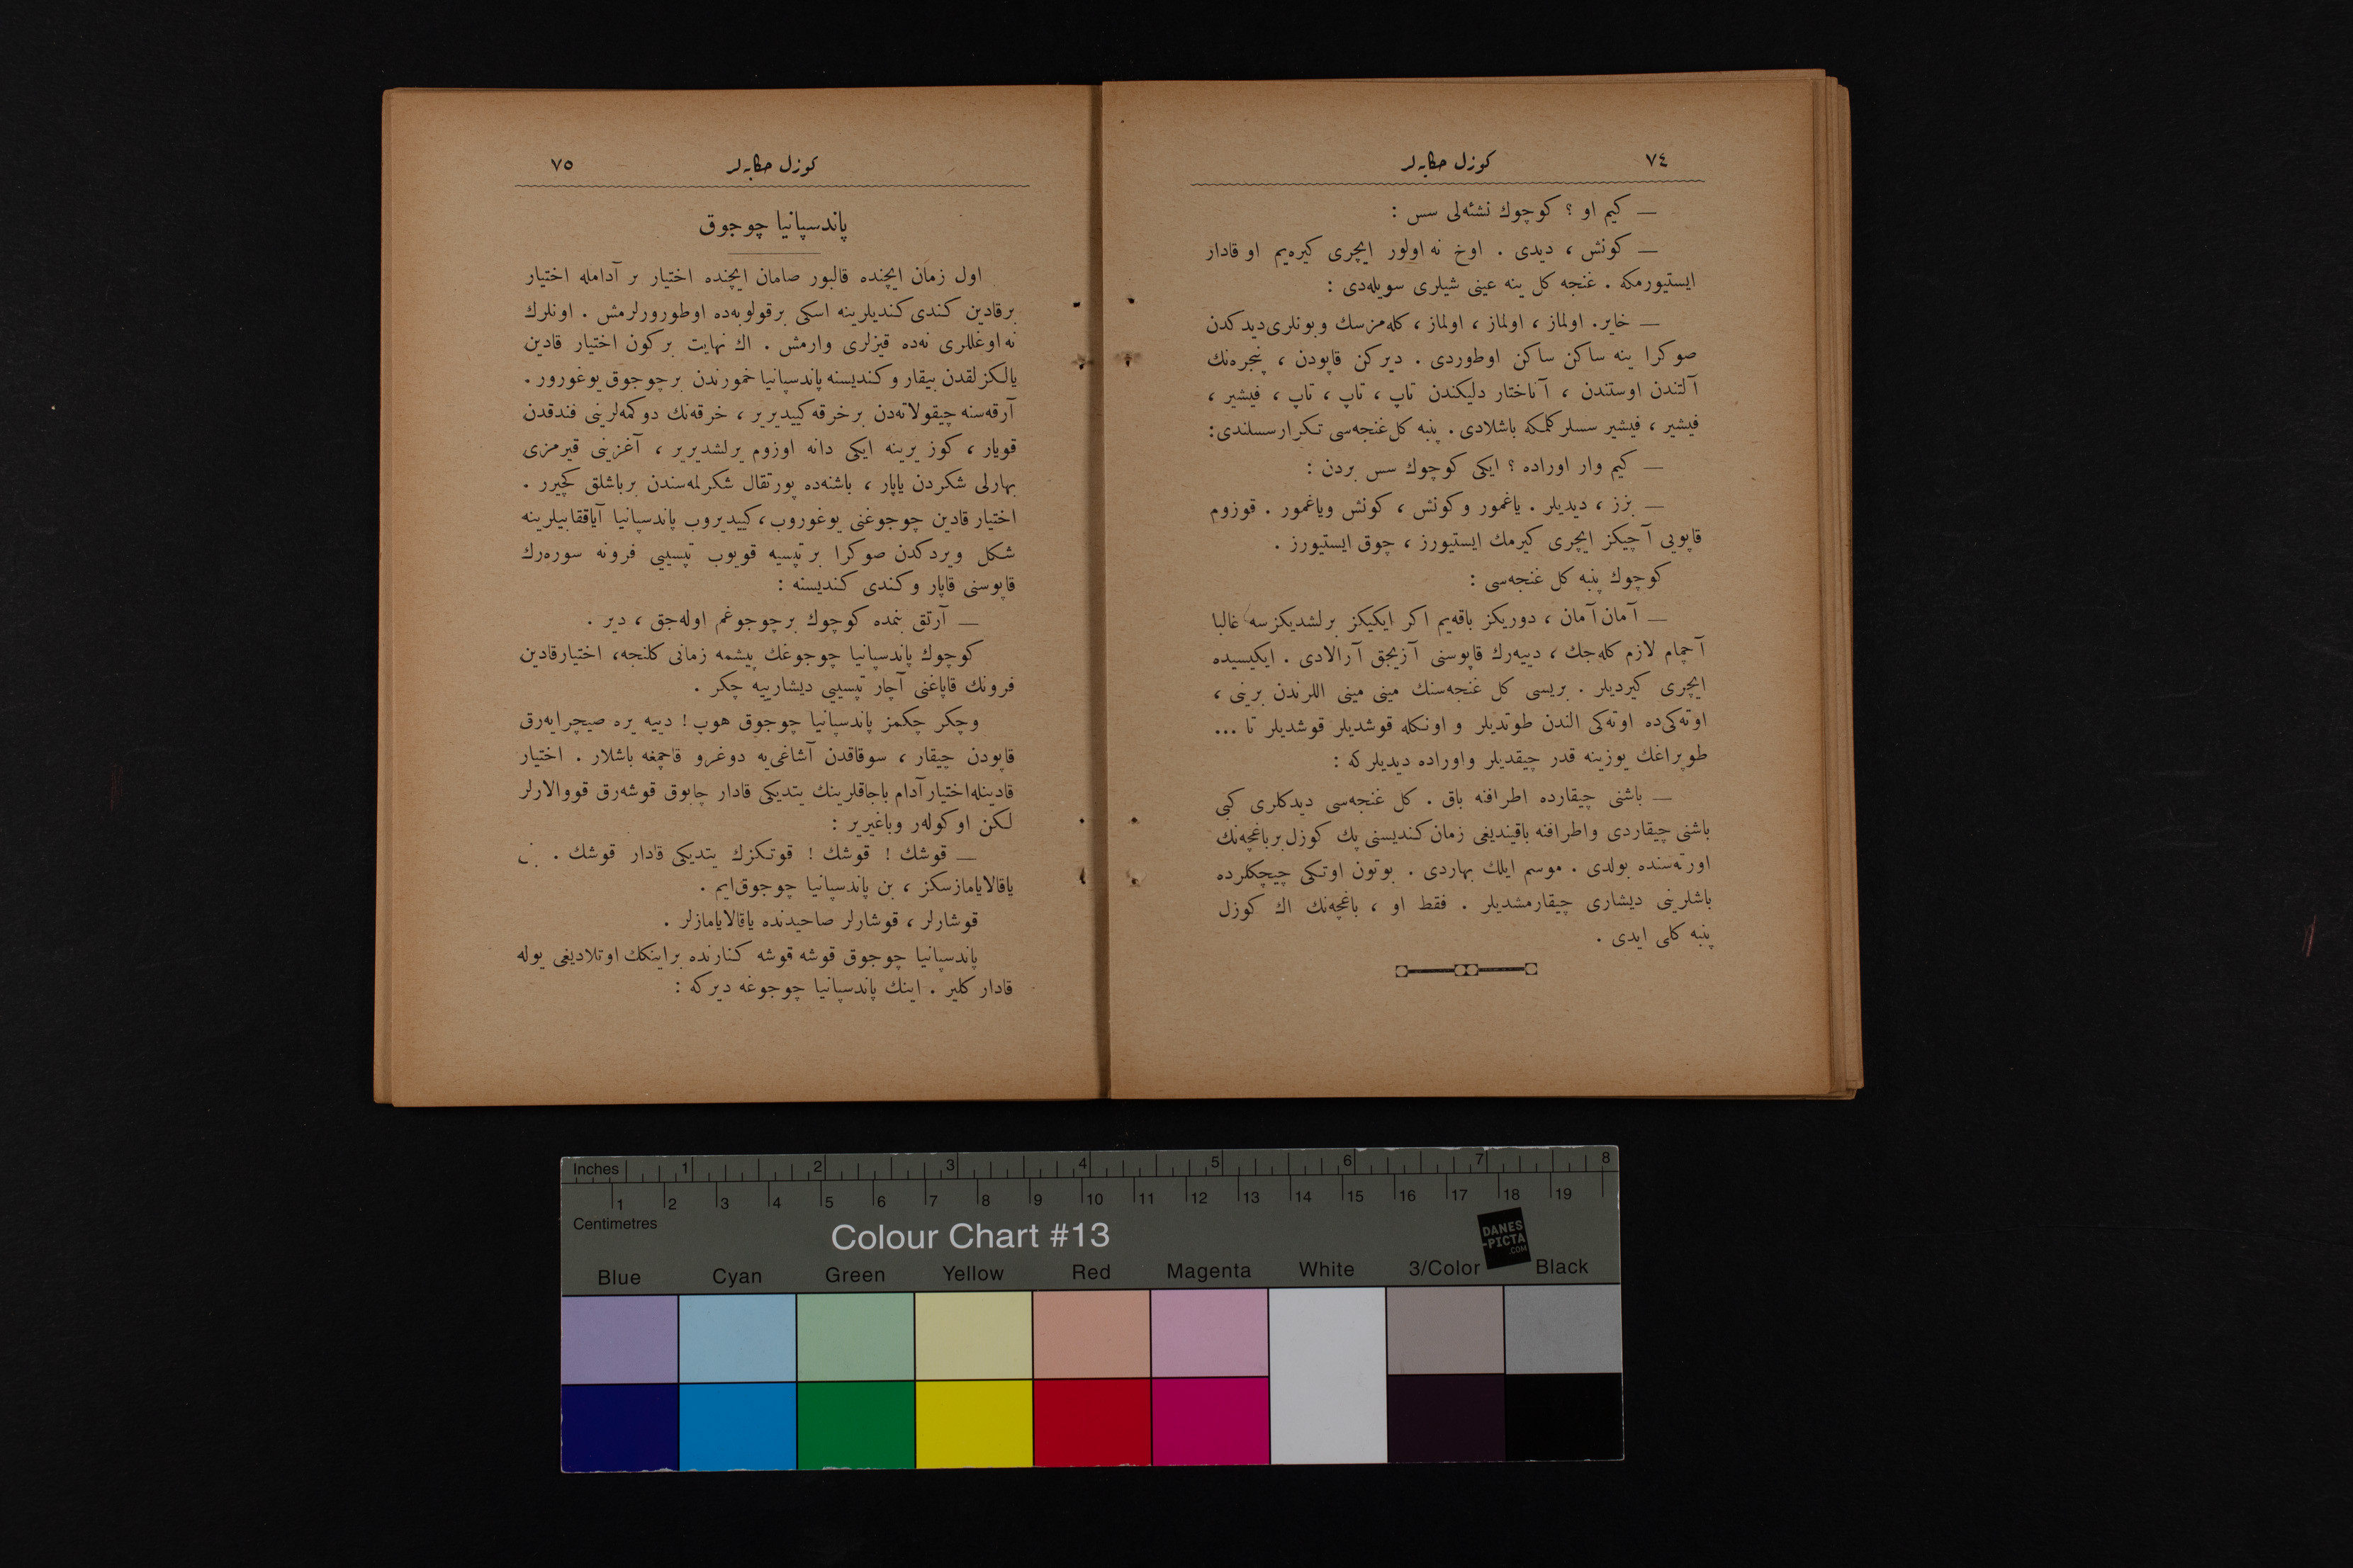 ٧٤ كوزل حكايه‌لر
— كيم او ؟ كوچوك نشئه‌لى سس :
— كونش ، ديدى . اوخ نه اولور ايچرى كيره‌يم او قادار
ايستيورمكه . غنجه كل ينه عينى شيلرى سويله‌دى :
— خاير. اولماز ، اولماز ، اولماز ، كله‌مزسك وبونلرى ديدكدن
صوكرا ينه ساكن ساكن اوطوردى . ديركن قاپودن ، پنجره‌نك
آلتندن اوستندن ، آناختار دليكندن تاپ ، تاپ ، تاپ ، فيشير ،
فيشير ، فيشير سسلر كلمكه باشلادى . پنبه كل غنجه‌سى تكرار سسلندى :
— كيم وار اوراده ؟ ايكى كوچوك سس بردن :
— بزز ، ديديلر . ياغمور وكونش ، كونش وياغمور . قوزوم
قاپويى آچيكز ايچرى كيرمك ايستيورز ، چوق ايستيورز .
كوچوك پنبه كل غنجه‌سى :
— آمان آمان ، دوريكز باقه‌يم اكر ايكيكز برلشديكزسه غالبا
آچمام لازم كله‌جك ، دييه‌رك قاپوسنى آزيجق آرالادى . ايكيسيده
ايچرى كيرديلر . بريسى كل غنجه‌سنك مينى مينى اللرندن برينى ،
اوته‌كى‌ده اوته‌كى الندن طوتديلر و اونكله قوشديلر قوشديلر تا ...
طوپراغك يوزينه قدر چيقديلر واوراده ديديلركه :
— باشنى چيقارده اطرافنه باق . كل غنجه‌سى ديدكلرى كبى
باشنى چيقاردى واطرافنه باقينديغى زمان كنديسنى پك كوزل برباغچه‌نك
اورته‌سنده بولدى . موسم ايلك بهاردى . بوتون اوتكى چيچكلرده
باشلرينى ديشارى چيقارمشديلر . فقط او ، باغچه‌نك اك كوزل
پنبه كلى ايدى .
كوزل حكايه‌لر ٧٥
پاندسپانيا چوجوق
اول زمان ايچنده قالبور صامان ايچنده اختيار بر آدامله اختيار
برقادين كندى كنديلرينه اسكى برقولوبه‌ده اوطورورلرمش . اونلرك
نه اوغللرى نه‌ده قيزلرى وارمش . اك نهايت بركون اختيار قادين
يالكزلقدن بيقار وكنديسنه پاندسپانيا خمورندن برچوجوق يوغورور .
آرقه‌سنه چيقولاته‌دن برخرقه كييديرير ، خرقه‌نك دوكمه‌لرينى فندقدن
قويار ، كوز يرينه ايكى دانه اوزوم يرلشديرير ، آغزينى قيرمزى
بهارلى شكردن ياپار ، باشنه‌ده پورتقال شكرلمه‌سندن برباشلق كچيرر .
اختيار قادين چوجوغنى يوغوروب ، كييديروب پاندسپانيا آياققابيلرينه
شكل ويردكدن صوكرا برتپسيه قويوب تپسييى فرونه سوره‌رك
قاپوسنى قاپار وكندى كنديسنه :
— آرتق بنمده كوچوك برچوجوغم اوله‌جق ، دير .
كوچوك پاندسپانيا چوجوغك پيشمه زمانى كلنجه، اختيارقادين
فرونك قاپاغنى آچار تپسييى ديشارييه چكر .
وچكر چكمز پاندسپانيا چوجوق هوب ! دييه يره صيچرايه‌رق
قاپودن چيقار ، سوقاقدن آشاغى‌يه دوغرو قاچمغه باشلار . اختيار
قادينله اختيار آدام باجاقلرينك يتديكى قادار چابوق قوشه‌رق قووالارلر
لكن او كوله‌ر وباغيرير :
— قوشك ! قوشك ! قوتكزك يتديكى قادار قوشك .
ياقالايامازسكز ، بن پاندسپانيا چوجوق‌ايم .
قوشارلر ، قوشارلر صاحيدنده ياقالايامازلر .
پاندسپانيا چوجوق قوشه قوشه كنارنده براينكك اوتلاديغى يوله
قادار كلير . اينك پاندسپانيا چوجوغه ديركه :
Inches 1 2 3 4 5 6 7 8
1 2 3 4 5 6 7 8 9 10 11 12 13 14 15 16 17 18 19
Centimetres
Colour Chart #13
DANES
-PICTA
.COM
Blue Cyan Green Yellow Red Magenta White 3/Color Black